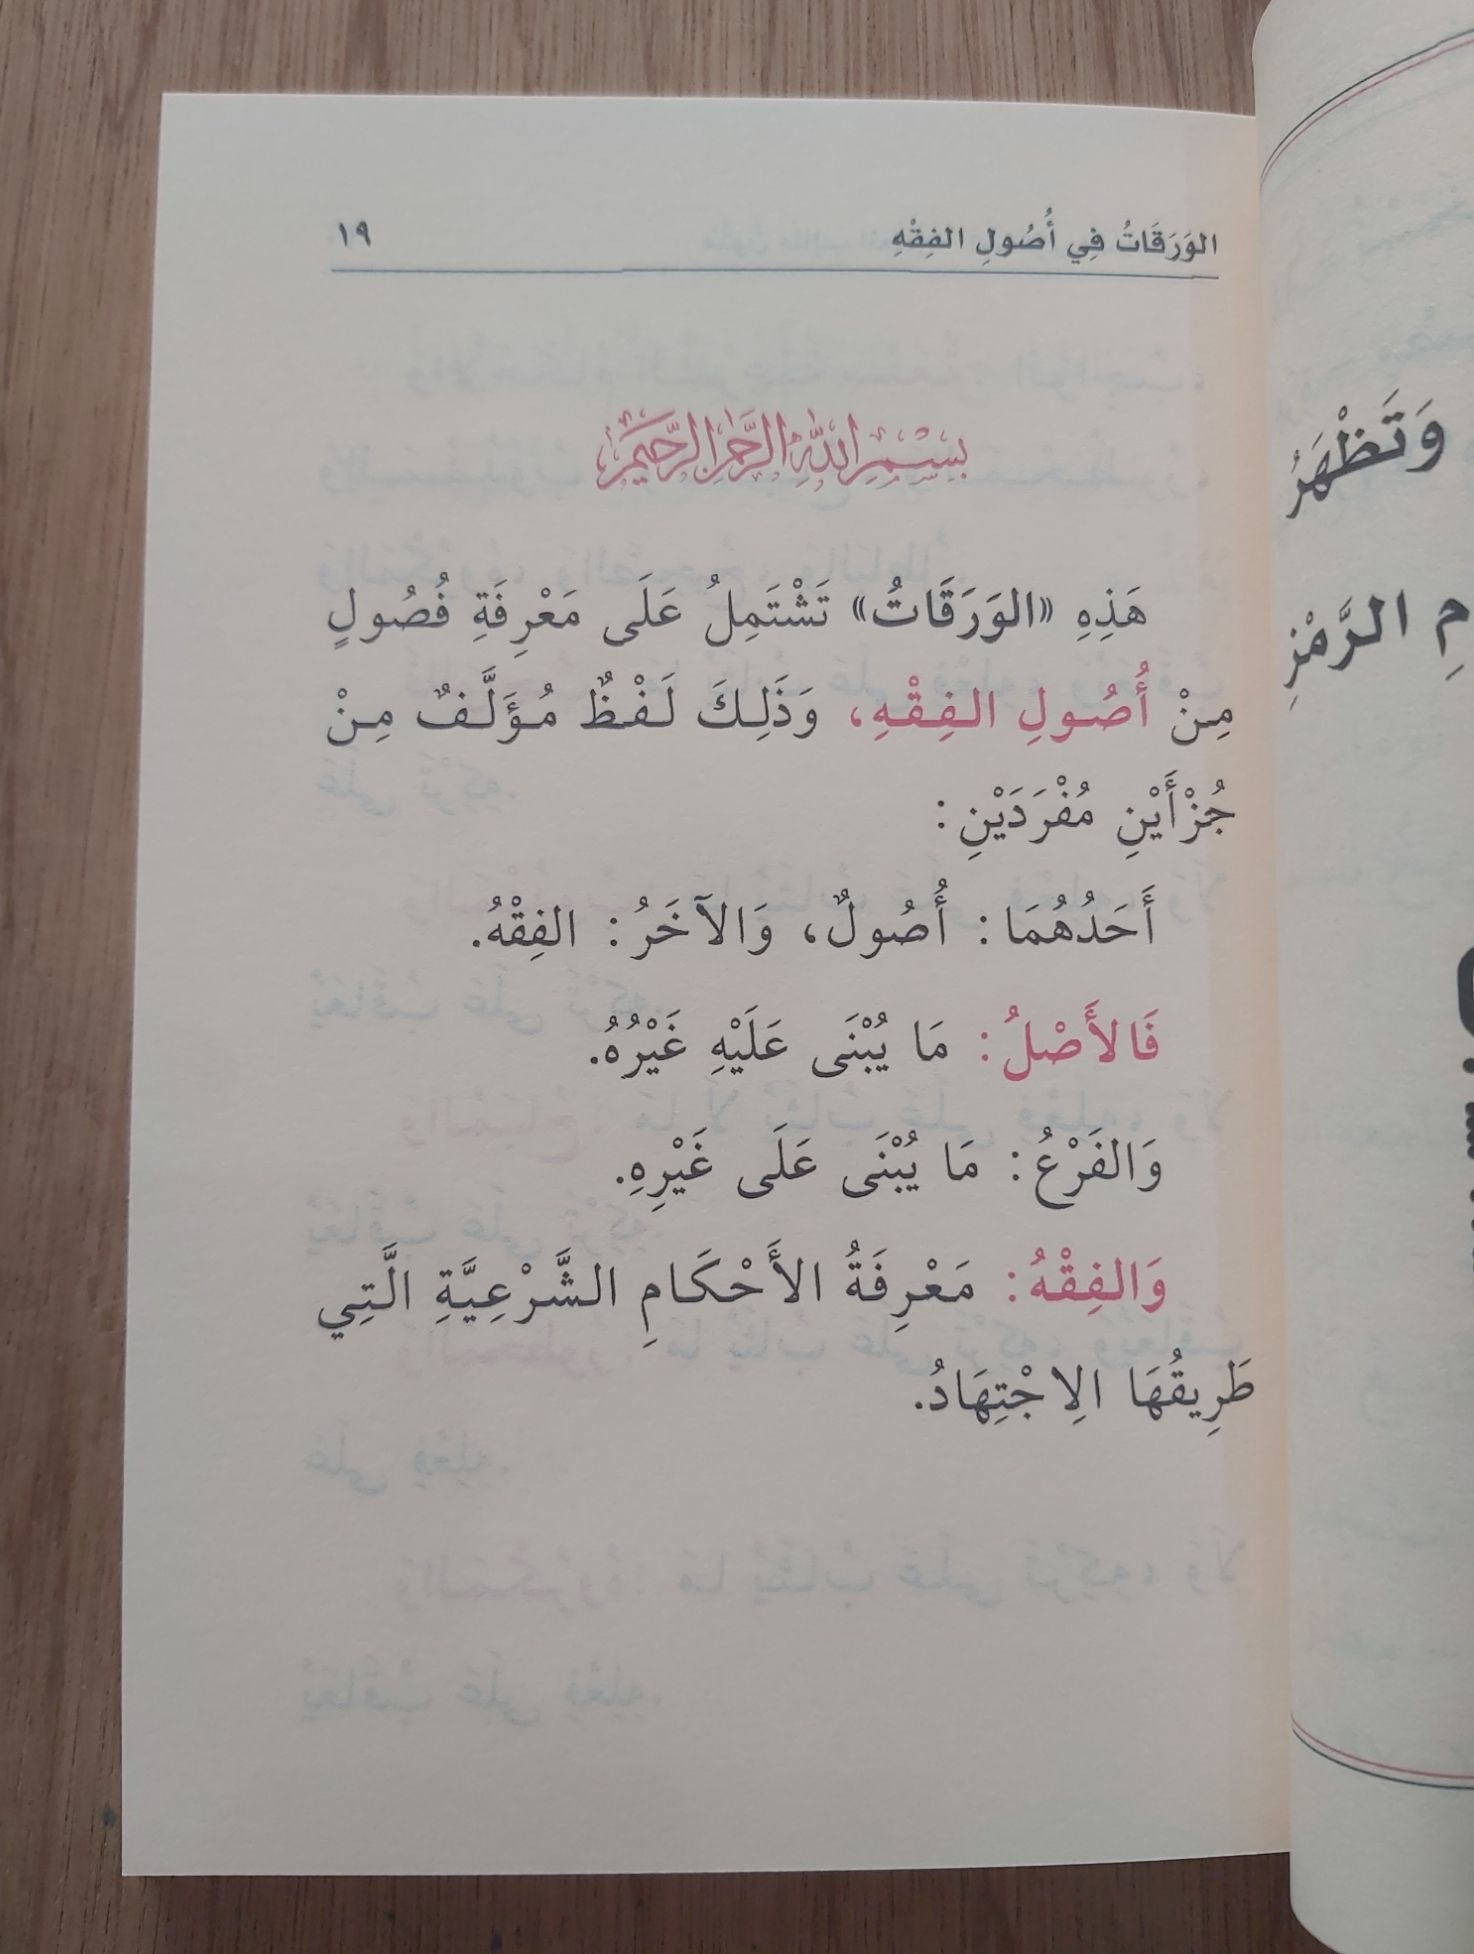 الوَرَقَاتُ فِي أُصُولِ الفِقْهِ ١٩
بِسْمِ اللَّهِ الرَّحْمَنِ الرَّحِيمِ
هَذِهِ «الوَرَقَاتُ» تَشْتَمِلُ عَلَى مَعْرِفَةِ فُصُولٍ
مِنْ أُصُولِ الفِقْهِ، وَذَلِكَ لَفْظٌ مُؤَلَّفٌ مِنْ
جُزْأَيْنِ مُفْرَدَيْنِ:
أَحَدُهُمَا: أُصُولٌ، وَالآخَرُ: الفِقْهُ.
فَالأَصْلُ: مَا يُبْنَى عَلَيْهِ غَيْرُهُ.
وَالفَرْعُ: مَا يُبْنَى عَلَى غَيْرِهِ.
وَالفِقْهُ: مَعْرِفَةُ الأَحْكَامِ الشَّرْعِيَّةِ الَّتِي
طَرِيقُهَا الِاجْتِهَادُ.
وَتَظْهَرُ
الرَّمْزِ